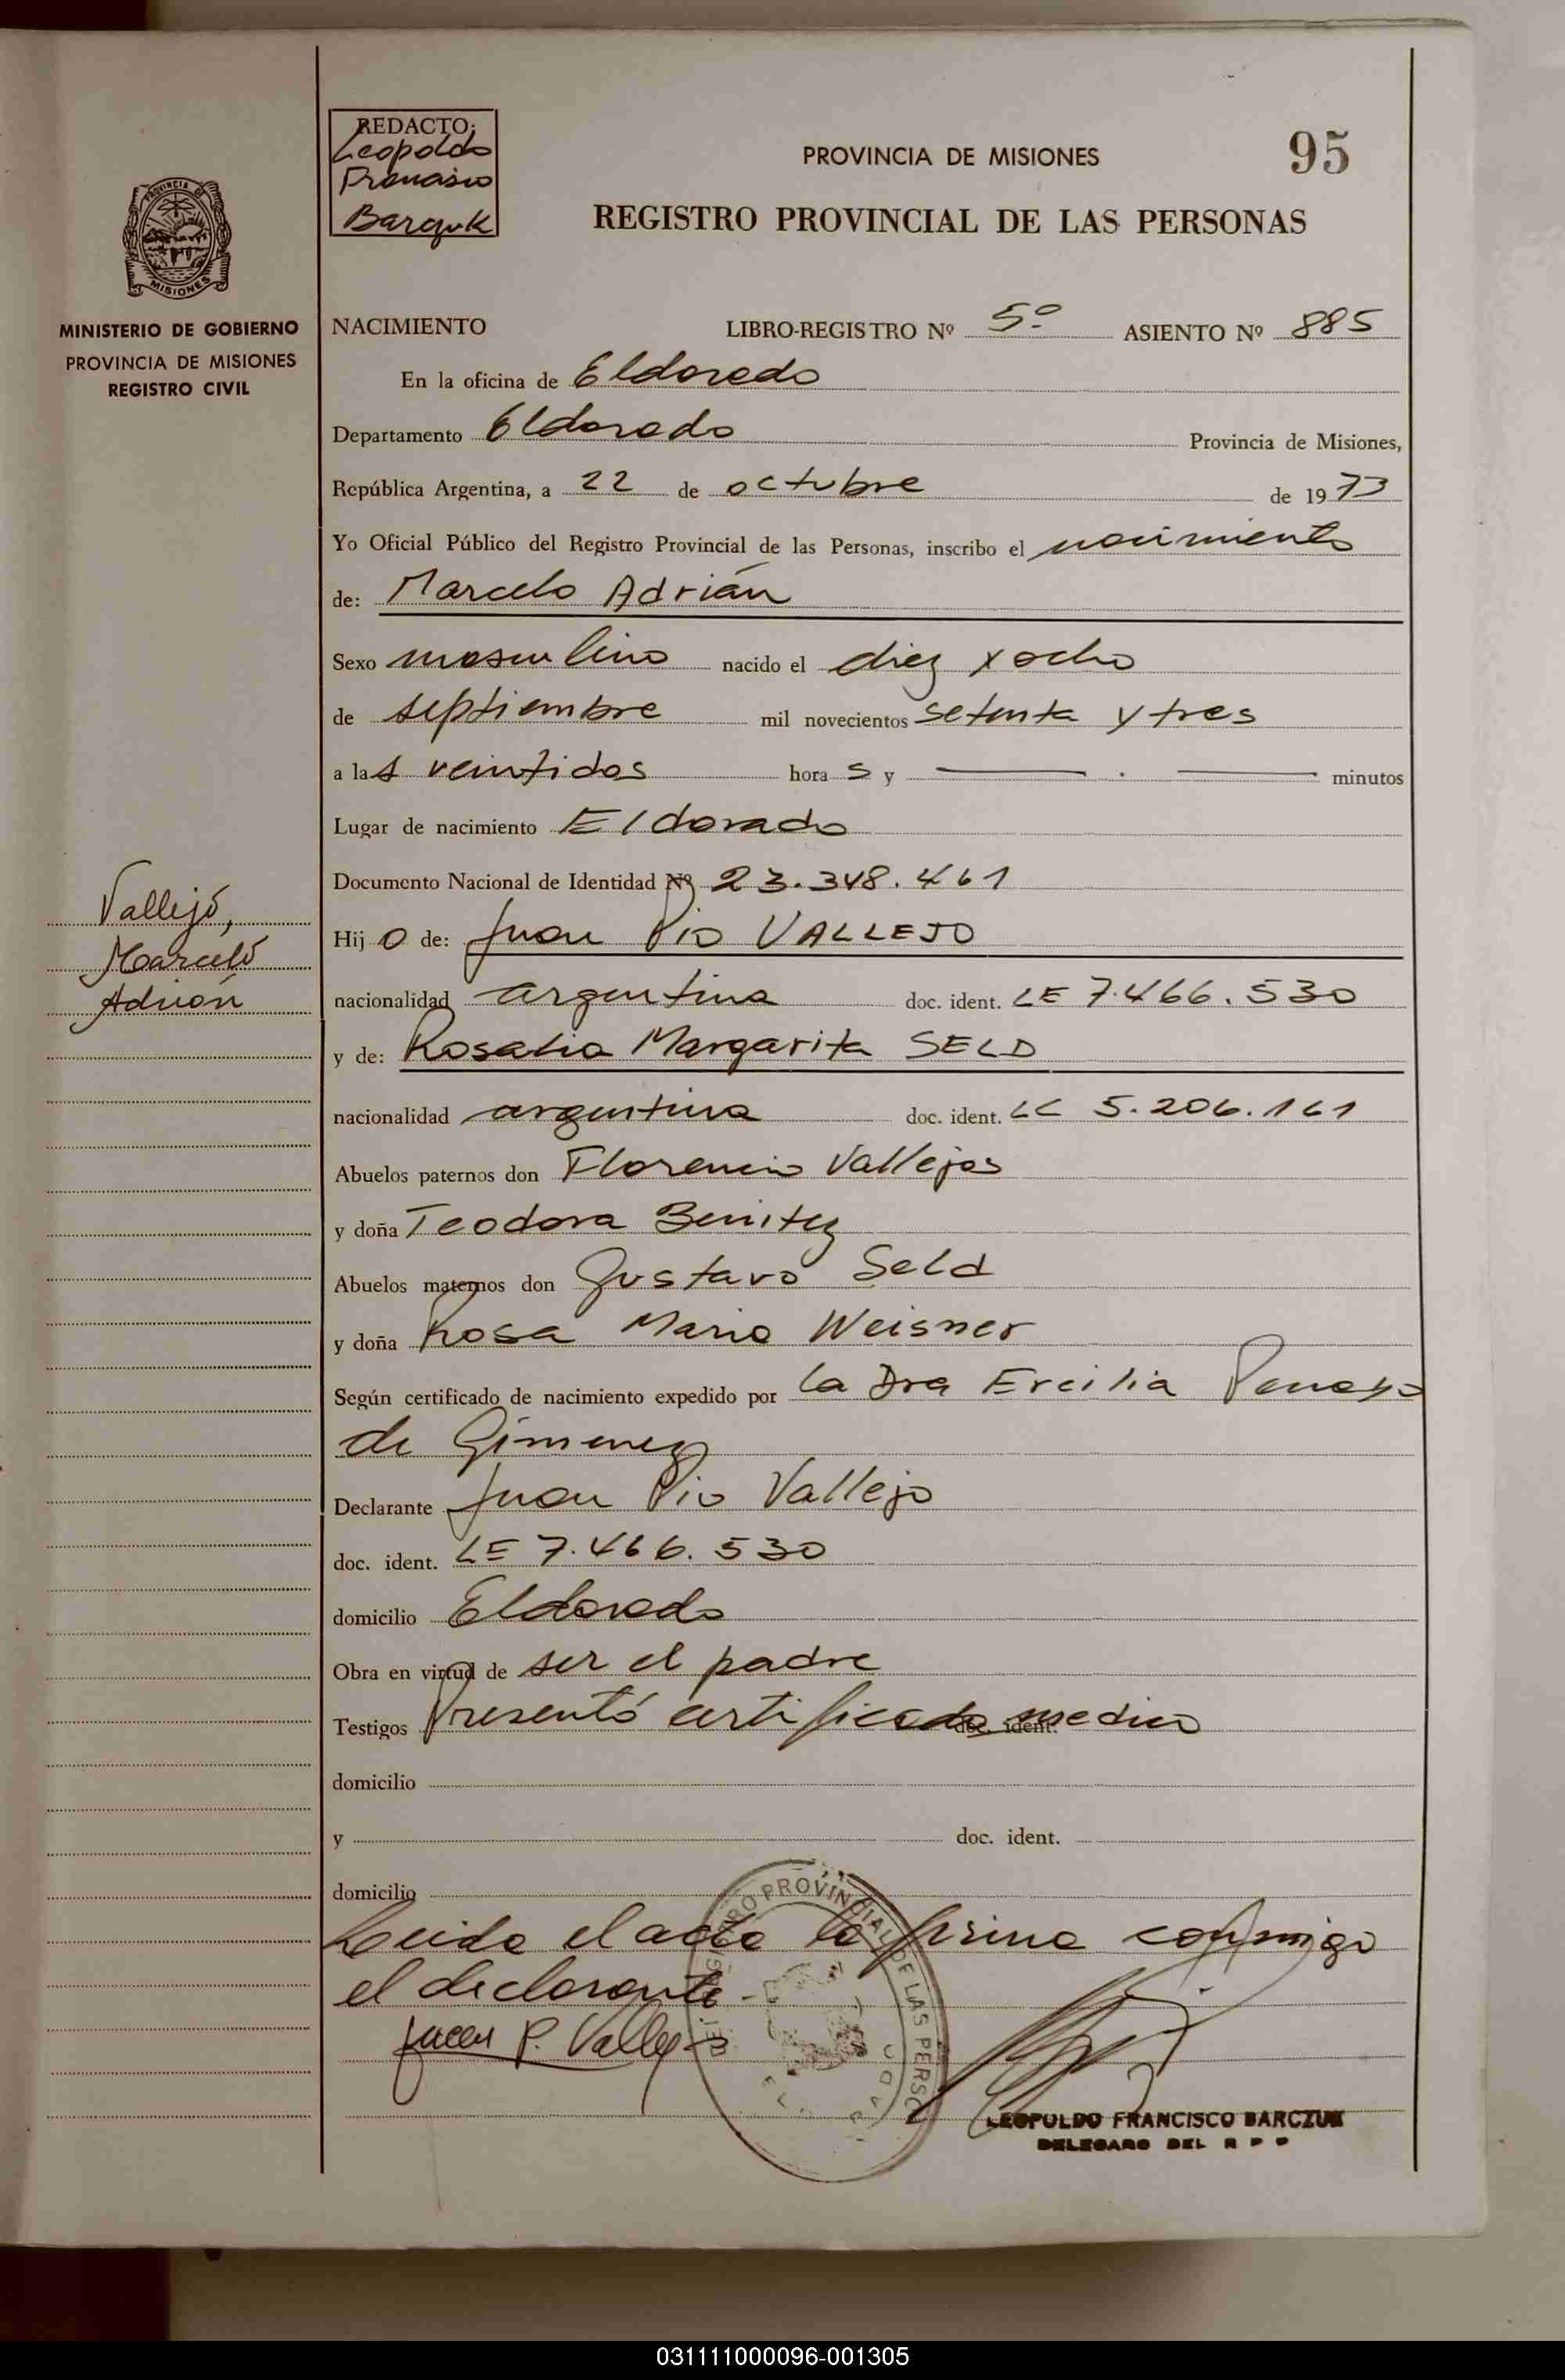 REDACTO:
Leopoldo
Francisco
Barczuk
PROVINCIA DE MISIONES
95
REGISTRO PROVINCIAL DE LAS PERSONAS
PROVINCIA DE
MISIONES
MINISTERIO DE GOBIERNO
PROVINCIA DE MISIONES
REGISTRO CIVIL
NACIMIENTO LIBRO-REGISTRO Nº 5º ASIENTO Nº 885
En la oficina de Eldorado
Departamento Eldorado Provincia de Misiones,
República Argentina, a 22 de octubre de 1973
Yo Oficial Público del Registro Provincial de las Personas, inscribo el nacimiento
de: Marcelo Adrián
Sexo masculino nacido el diez y ocho
de septiembre mil novecientos setenta y tres
a las veintidos horas y minutos
Lugar de nacimiento Eldorado
Documento Nacional de Identidad Nº 23.348.461
Vallejo,
Marcelo
Adrián
Hijo de: Juan Pio VALLEJO
nacionalidad argentina doc. ident. LE 7.466.530
y de: Rosalia Margarita SELD
nacionalidad argentina doc. ident. LC 5.206.161
Abuelos paternos don Florencio Vallejos
y doña Teodora Benitez
Abuelos maternos don Gustavo Seld
y doña Rosa Maria Weisner
Según certificado de nacimiento expedido por la Dra Ercilia
de Gimenez
Declarante Juan Pio Vallejo
doc. ident. LE 7.466.530
domicilio Eldorado
Obra en virtud de ser el padre
Testigos Presentó certificado medico doc. ident.
domicilio
y doc. ident.
domicilio
Leida el acta la firma conmigo
el declarante.-
Juan P. Vallejo
REGISTRO PROVINCIAL DE LAS PERSO
LEOPOLDO FRANCISCO BARCZUK
DELEGADO DEL R P P
031111000096-001305